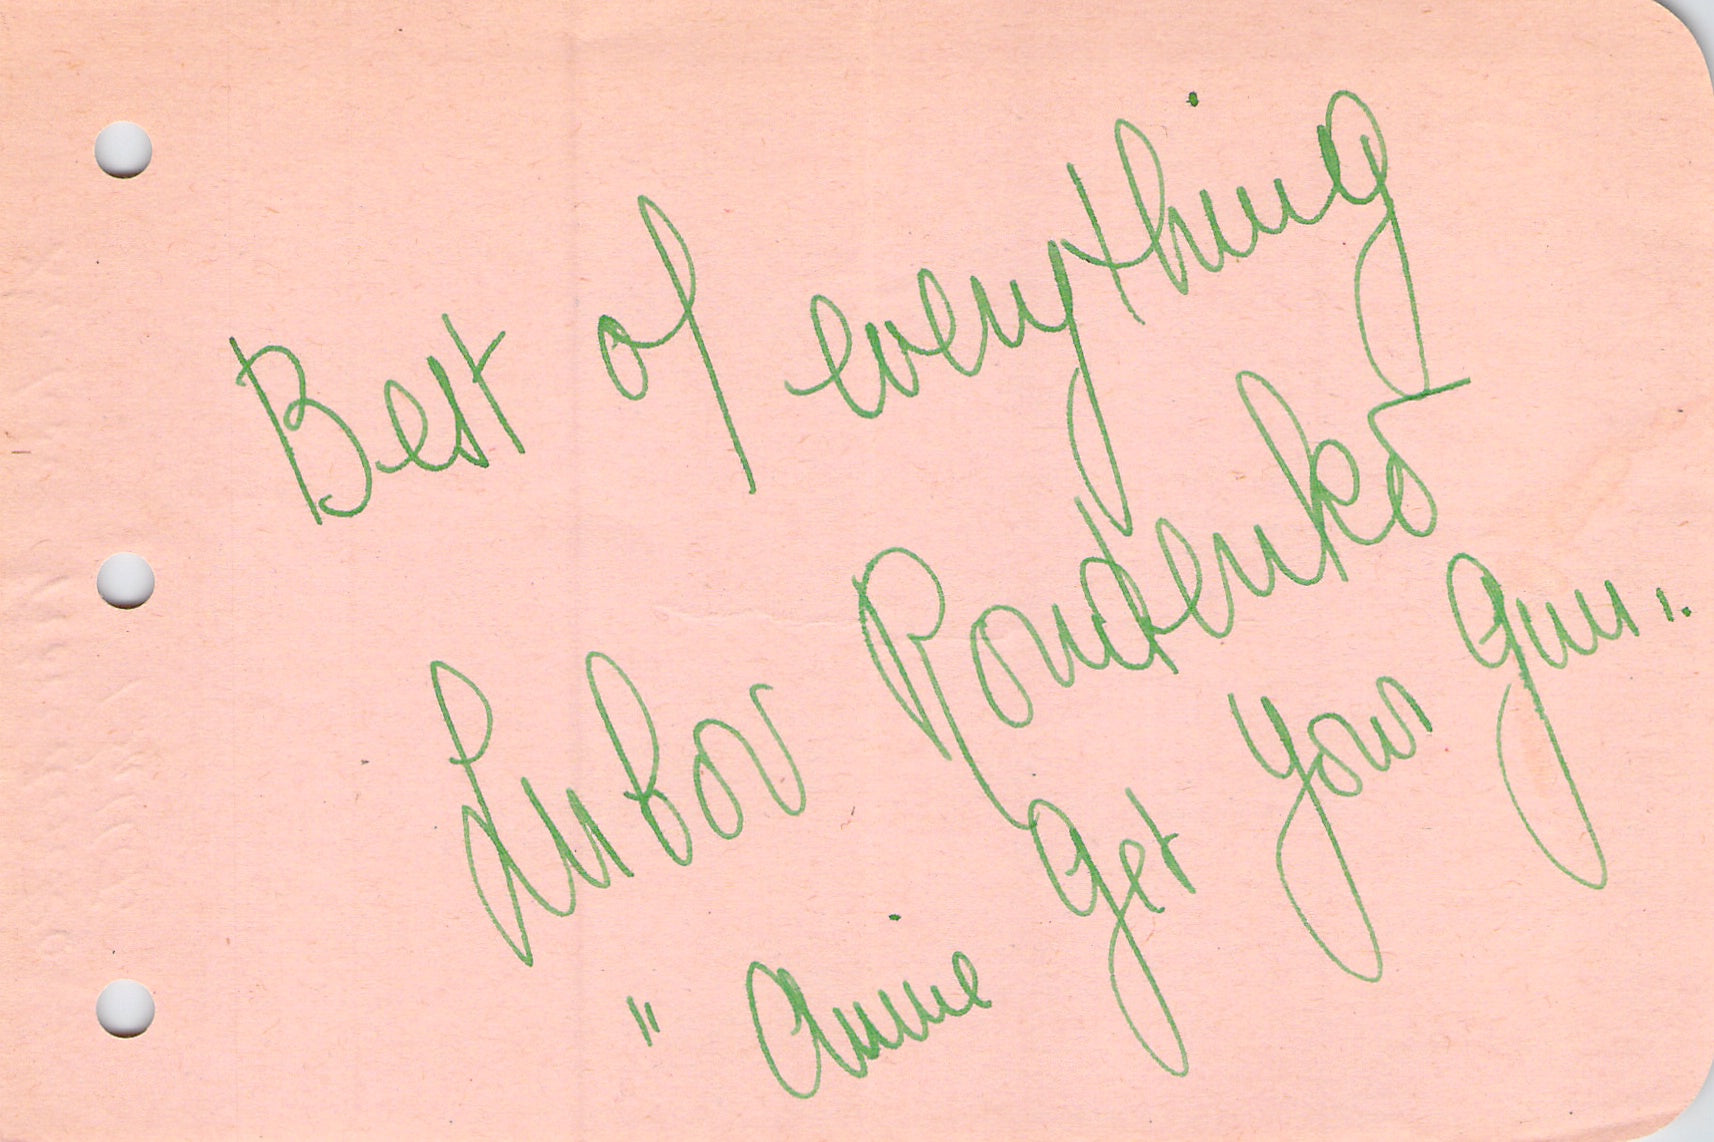 Best of everything
Lubov Roudenko
"Annie Get Your Gun"